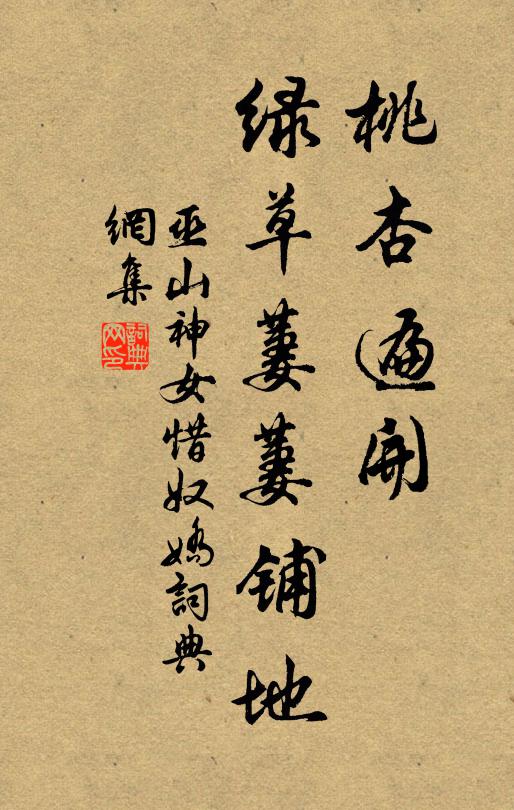 桃杏遍開
綠草萋萋鋪地
巫山神女惜奴嬌詞典
網集
詞典
网印